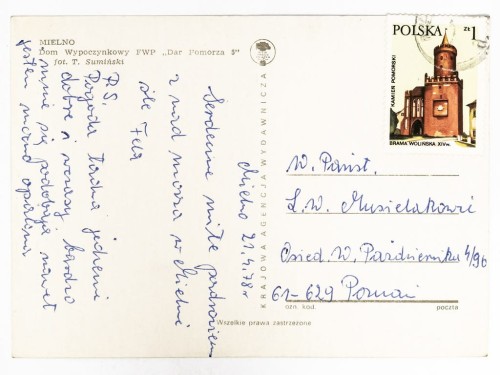 MIELNO
Dom Wypoczynkowy FWP „Dar Pomorza 5"
fot. T. Sumiński
Mielno 21.4.78r
Serdeczne miłe pozdrowienia
z nad morza w Mielnie
śle Fela
P.S.
Pogoda ładna jedzenie
dobre i wczasy bardzo
mi się podobają nawet
jestem mocno opalona
KRAJOWA AGENCJA WYDAWNICZA
Wszelkie prawa zastrzeżone
POLSKA zł 1
KAMIEŃ POMORSKI
BRAMA WOLIŃSKA XIV w.
W. Państ.
L. W. Musielakowie
Osied. W. Październiku 4/96
61-629 Poznań
ozn. kod.
poczta